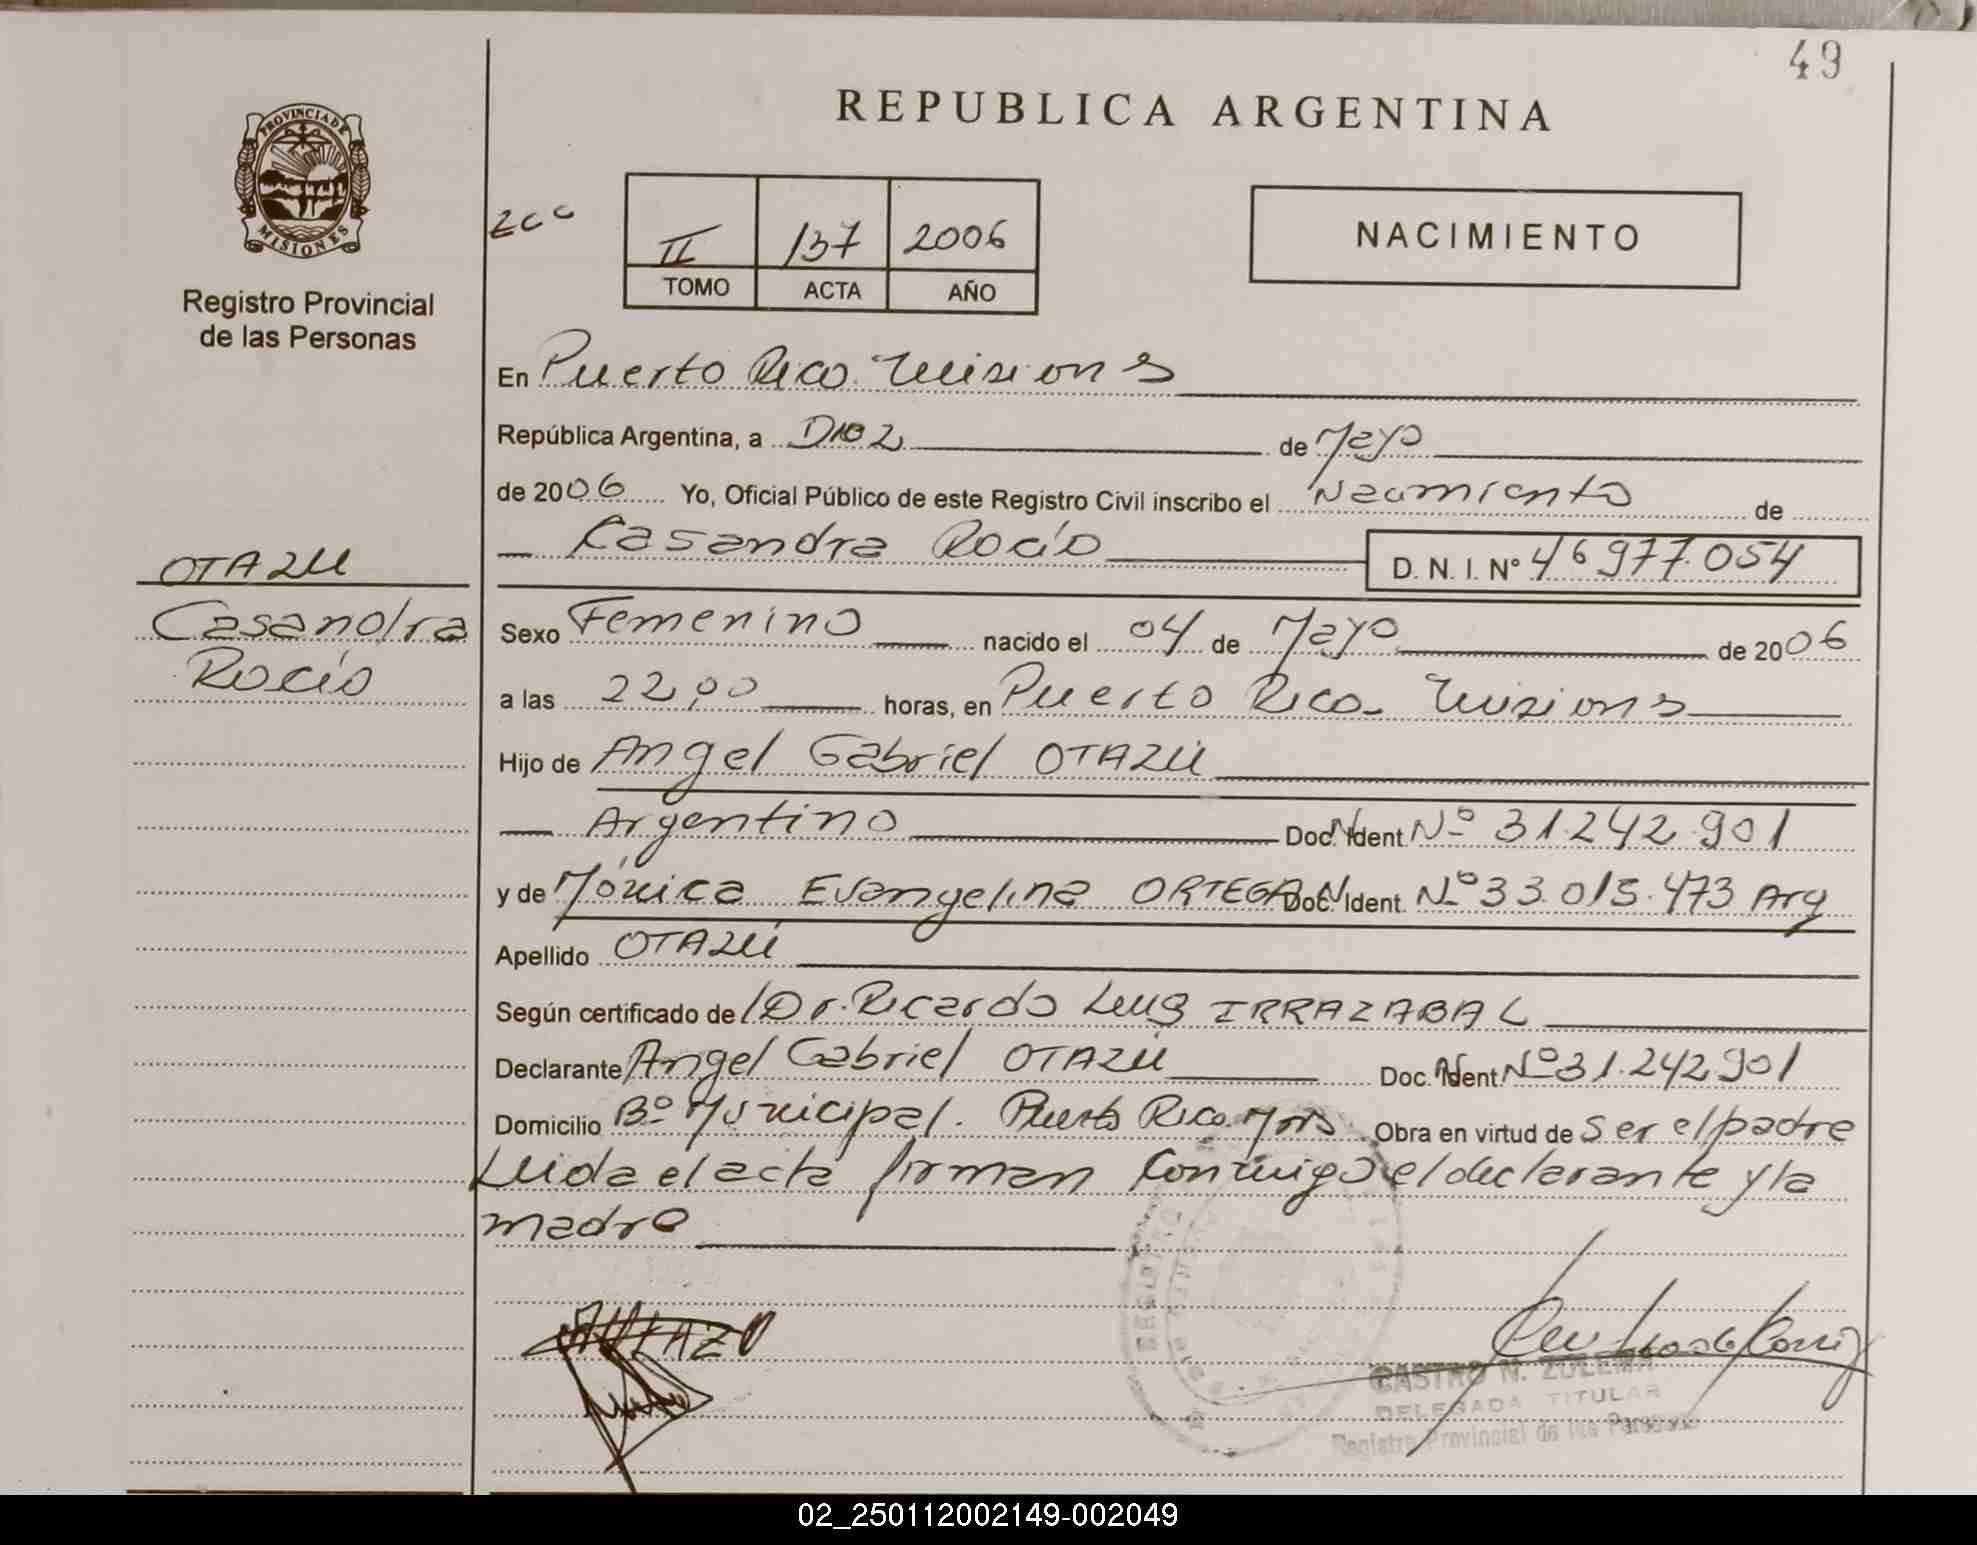 49
REPUBLICA ARGENTINA
PROVINCIA DE
MISIONES
Registro Provincial
de las Personas
II 137 2006
TOMO ACTA AÑO
NACIMIENTO
En Puerto Rico. Misiones
República Argentina, a Diez de Mayo
de 2006 Yo, Oficial Público de este Registro Civil inscribo el Nacimiento de
Casandra Rocío D. N. I. Nº 46977.054
OTAZU
Casandra
Rocío
Sexo Femenino nacido el 04 de Mayo de 2006
a las 22,00 horas, en Puerto Rico - Misiones
Hijo de Angel Gabriel OTAZÚ
Argentino Doc. Nº Ident Nº 31.242.901
y de Mónica Evangelina ORTEGA Doc. Ident. Nº 33.015.473 Arg
Apellido OTAZÚ
Según certificado de Dr. Ricardo Luis IRRAZABAL
Declarante Angel Gabriel OTAZÚ Doc. Ident. Nº 31.242.901
Domicilio Bº Municipal. Puerto Rico. Mnes Obra en virtud de Ser el padre
Leida el acta firman conmigo el declarante y la
madre
CASTRO N. ZULEMA
DELEGADA TITULAR
Registro Provincial de las Personas
02_250112002149-002049